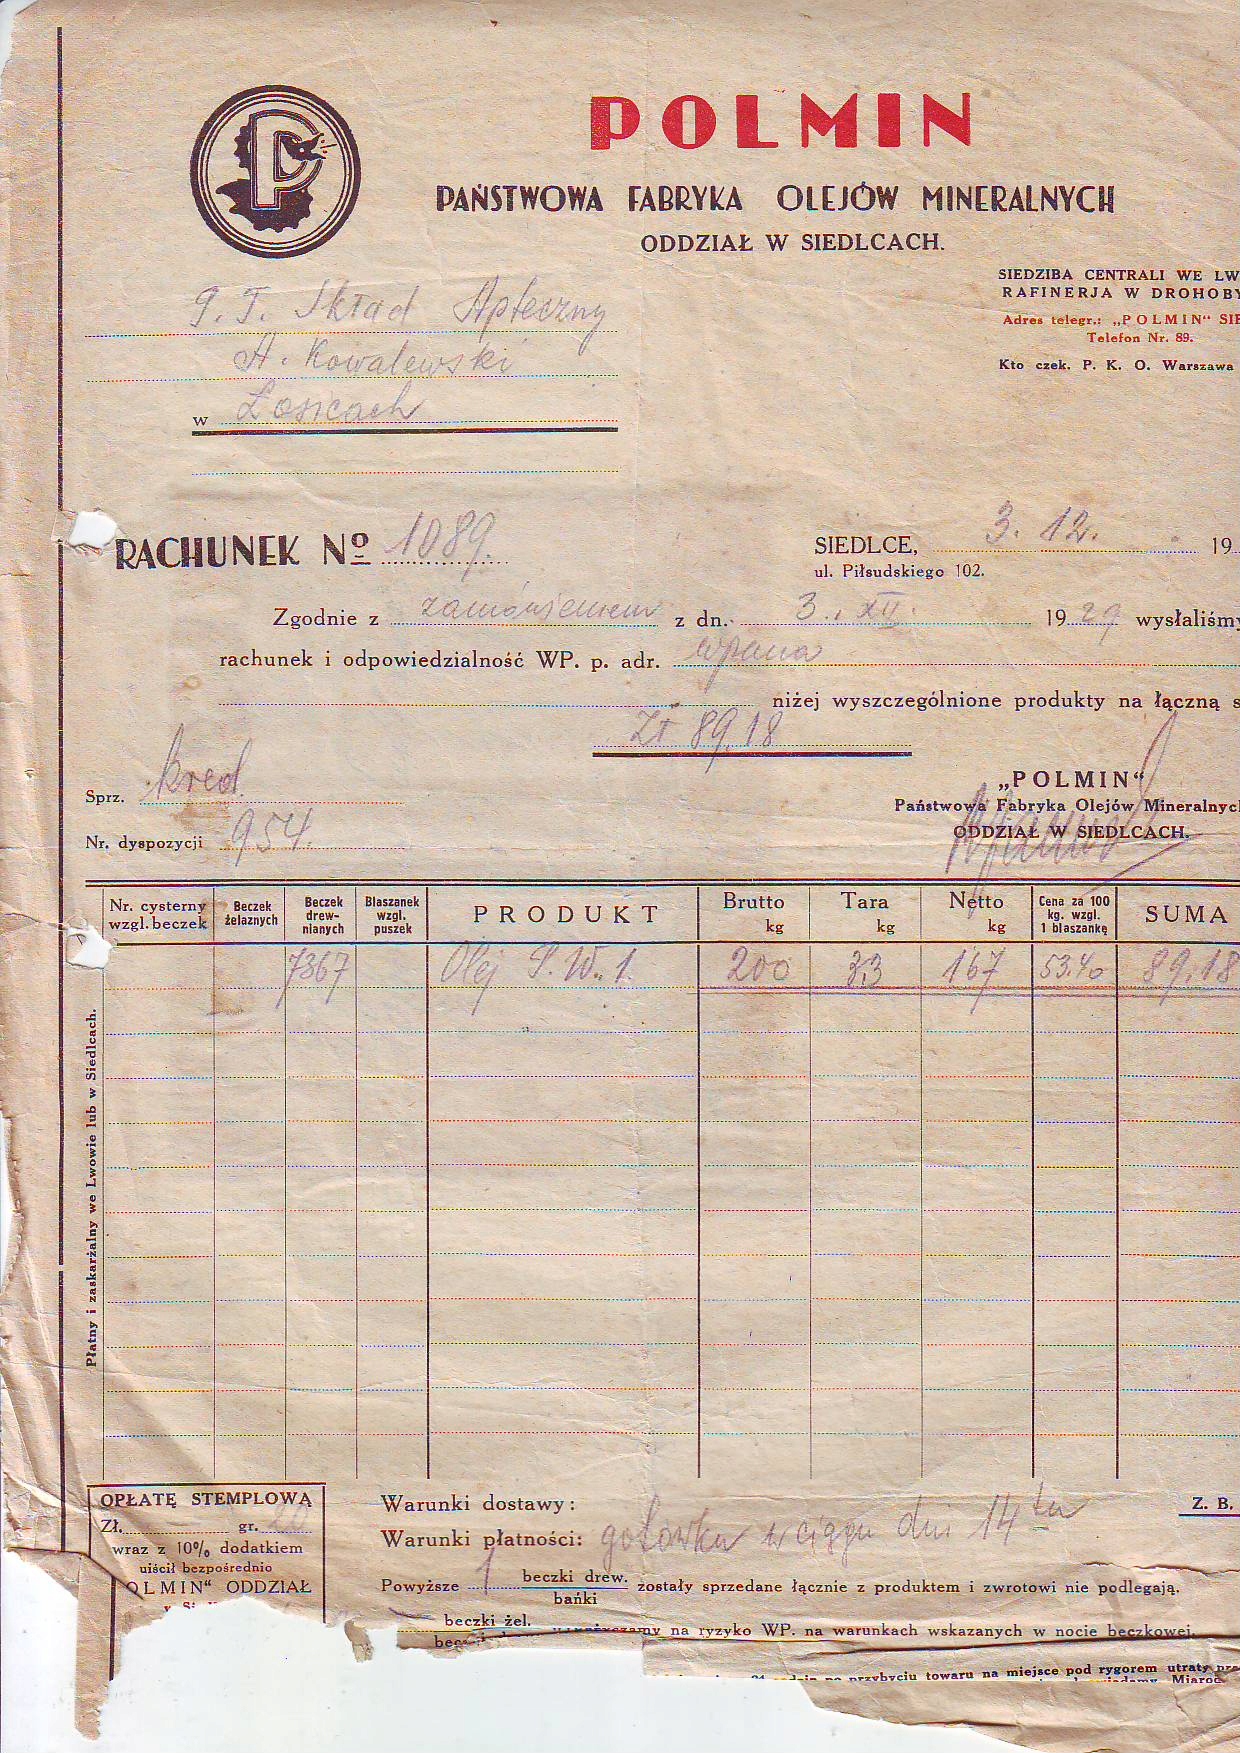 POLMIN
PAŃSTWOWA FABRYKA OLEJÓW MINERALNYCH
ODDZIAŁ W SIEDLCACH.
SIEDZIBA CENTRALI WE LW
RAFINERJA W DROHOBY
Adres telegr.: „POLMIN“ SIE
Telefon Nr. 89.
Kto czek. P. K. O. Warszawa
P. T. Skład Apteczny
A. Kowalewski
w Łosicach
RACHUNEK Nº 1089.
SIEDLCE, 3. 12. 19
ul. Piłsudskiego 102.
Zgodnie z zamówieniem z dn. 3. XII. 1929 wysłaliśmy
rachunek i odpowiedzialność WP. p. adr. wpana
niżej wyszczególnione produkty na łączną s
Zł 89,18
Sprz. kred.
„POLMIN“
Państwowa Fabryka Olejów Mineralnych
ODDZIAŁ W SIEDLCACH.
Nr. dyspozycji 954.
Nr. cysterny wzgl. beczek Beczek żelaznych Beczek drew-nianych Blaszanek wzgl. puszek PRODUKT Brutto kg Tara kg Netto kg Cena za 100 kg. wzgl. 1 blaszankę SUMA
7367 Olej S. W. 1. 200 33 167 53.40 89,18
Płatny i zaskarżalny we Lwowie lub w Siedlcach.
OPŁATĘ STEMPLOWĄ
Zł. gr. 20
wraz z 10% dodatkiem
uiścił bezpośrednio
OLMIN“ ODDZIAŁ
Warunki dostawy:
Z. B.
Warunki płatności: gotówka w ciągu dni 14tu
Powyższe 1 beczki drew. bańki zostały sprzedane łącznie z produktem i zwrotowi nie podlegają.
beczki żel.
na ryzyko WP. na warunkach wskazanych w nocie beczkowej.
po przybyciu towaru na miejsce pod rygorem utraty